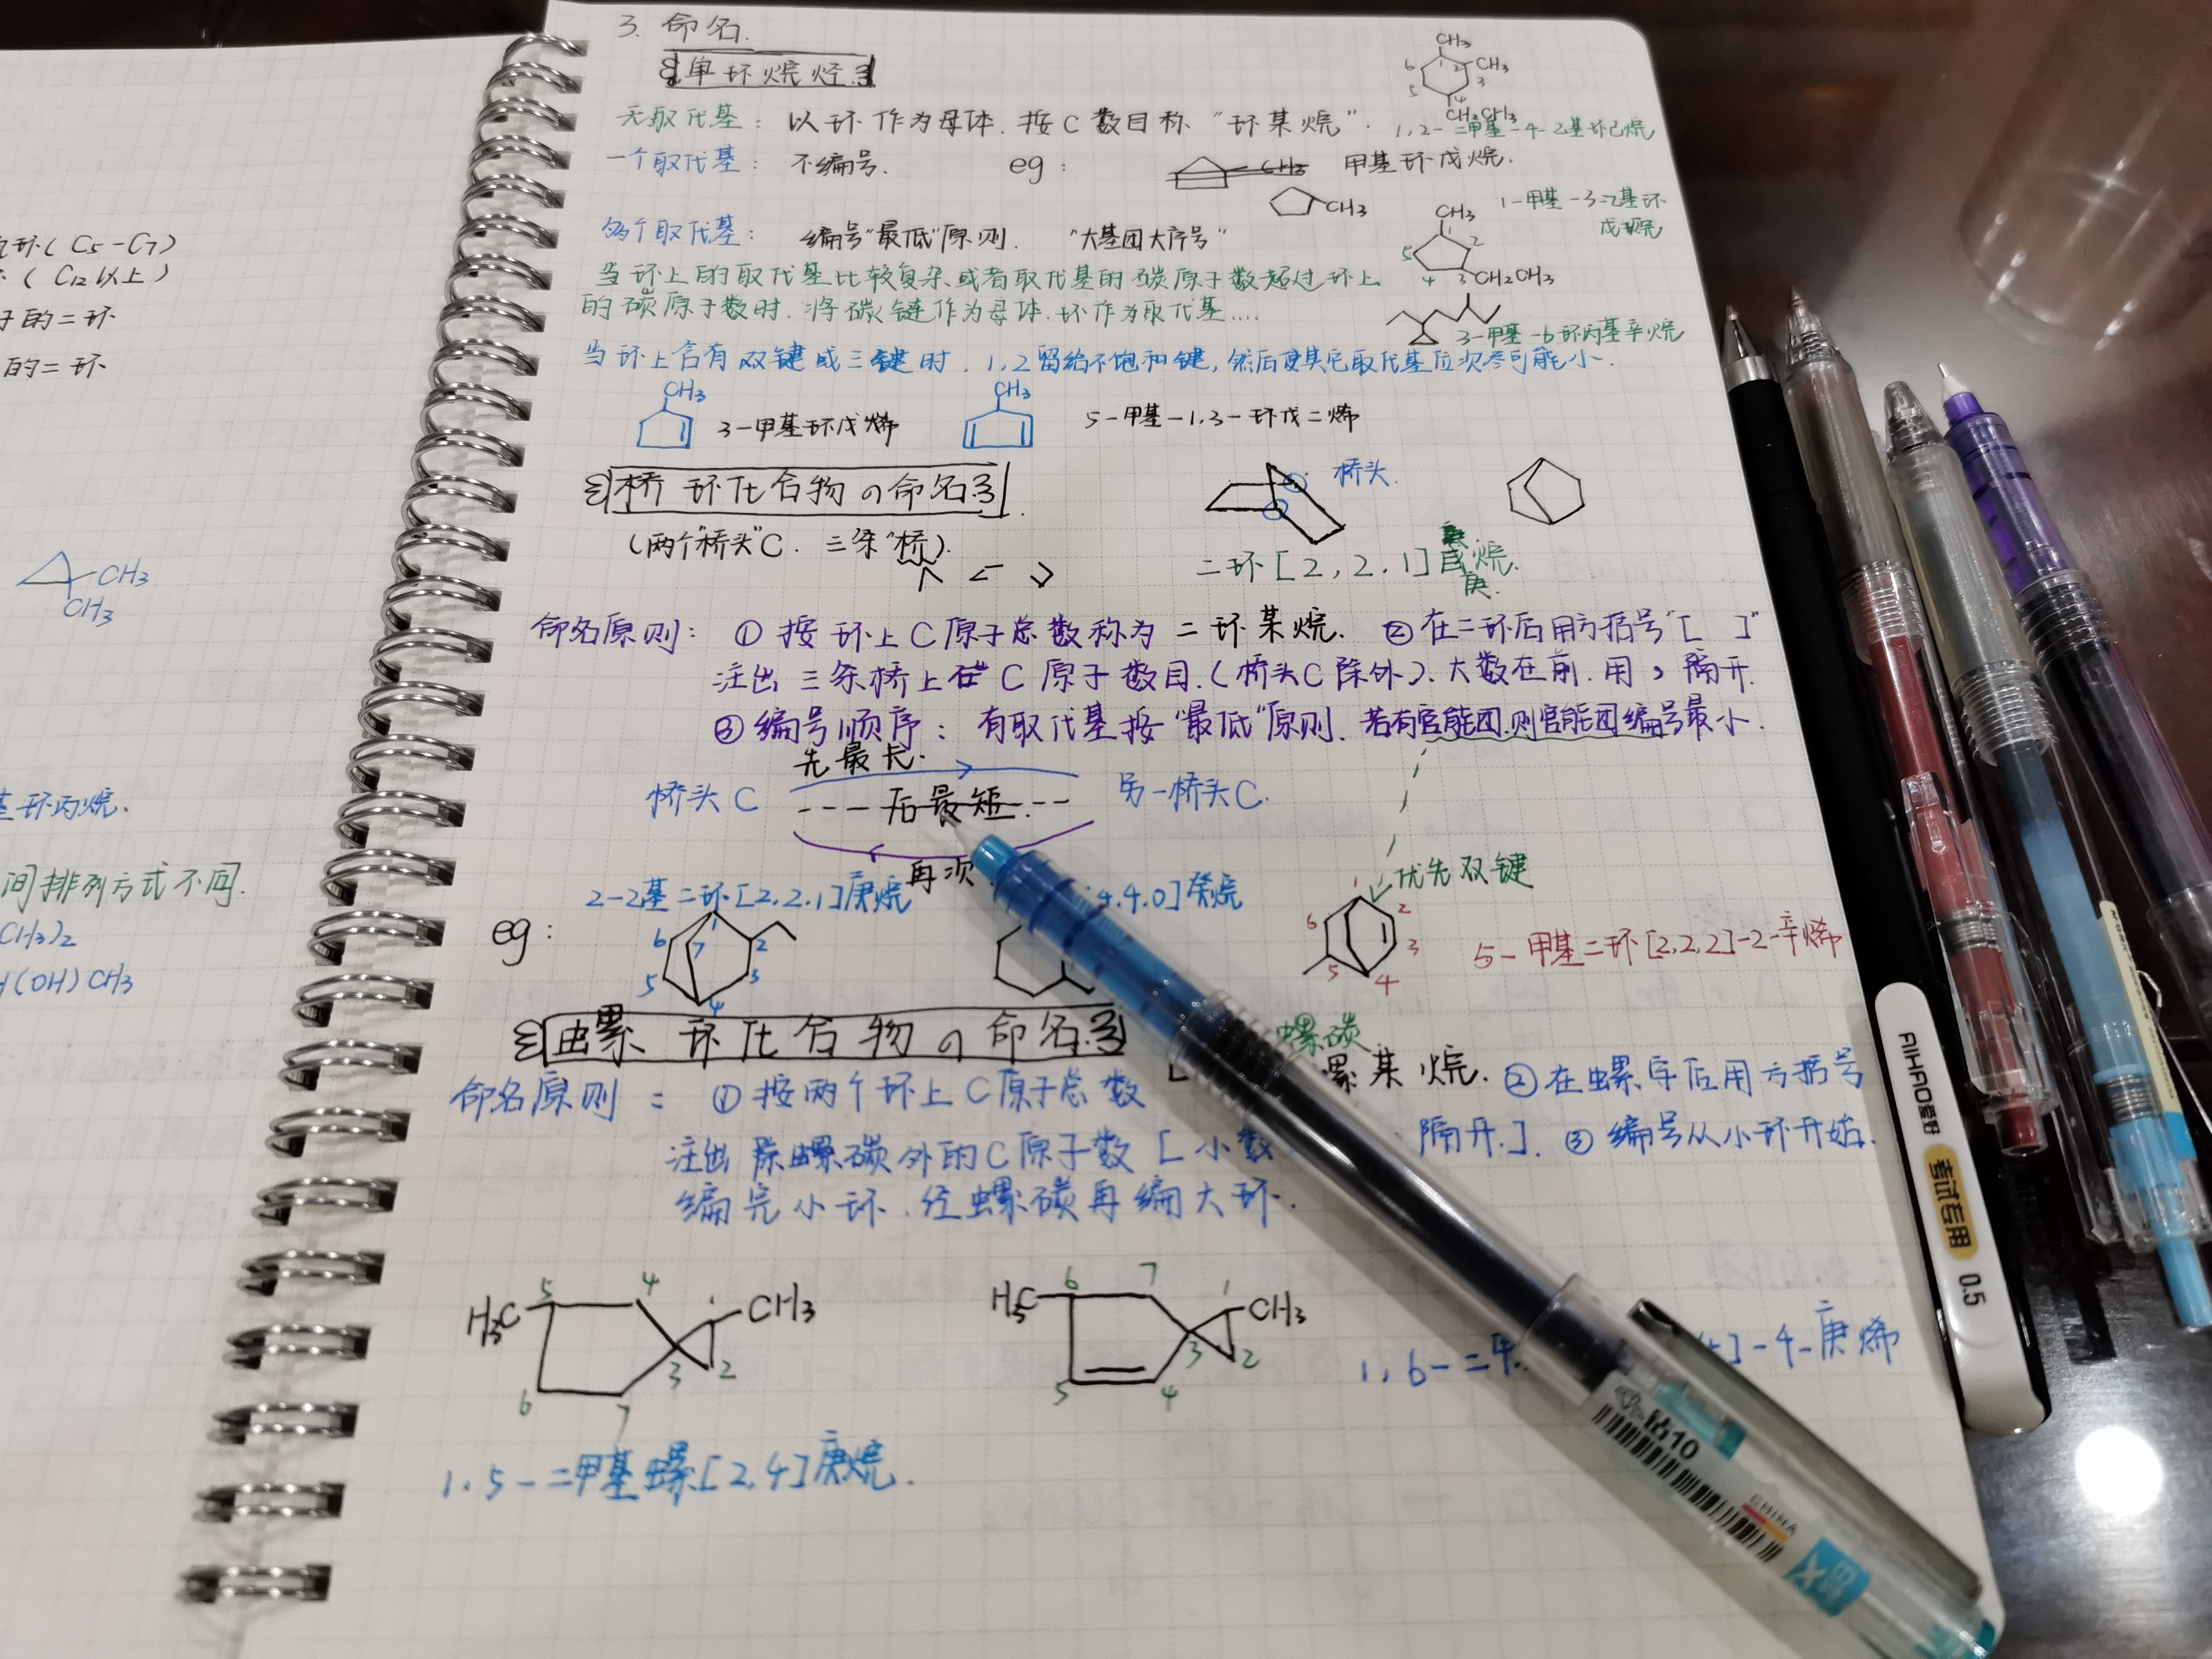 3. 命名.
单环烷烃
CH3
CH3
CH2CH3
1,2-二甲基-4-乙基环己烷
无取代基: 以环作为母体. 按C数目称 "环某烷".
一个取代基: 不编号. eg: 甲基环戊烷.
CH3
多个取代基: 编号"最低"原则. "大基团大序号"
CH3
1-甲基-3-乙基环
戊烷
CH2CH3
当环上的取代基比较复杂或者取代基的碳原子数超过环上
的碳原子数时. 将碳链作为母体. 环作为取代基....
3-甲基-6-环丙基辛烷
当环上含有双键或三键时, 1,2留给不饱和键, 然后使其它取代基位次尽可能小.
CH3 3-甲基环戊烯 CH3 5-甲基-1,3-环戊二烯
桥环化合物の命名 桥头.
(两个"桥头"C. 三条"桥").
二环[2,2,1]庚烷.
命名原则: ① 按环上C原子总数称为二环某烷. ②在二环后用方括号"[ ]"
注出三条桥上C原子数目.(桥头C除外). 大数在前. 用 , 隔开.
③ 编号顺序: 有取代基按"最低"原则. 若有官能团.则官能团编号最小.
先最长.
桥头C ---后最短.-- 另一桥头C.
再次
2-乙基二环[2,2,1]庚烷 4.4.0]癸烷
优先双键
eg: 1 2 3 4 5 6 7
1 2 3 4 5 6
5-甲基二环[2,2,2]-2-辛烯
螺环化合物の命名 螺碳
命名原则: ①按两个环上C原子总数 螺某烷. ②在螺字后用方括号
注出除螺碳外的C原子数 [小数 隔开.]. ③ 编号从小环开始.
编完小环. 经螺碳再编大环.
H3C 5 4 1 CH3
3 2
6 7
H3C 6 7 1 CH3
3 2
5 4
1,6-二甲 ]-4-庚烯
1.5-二甲基螺[2,4]庚烷.
环(C5-C7)
(C12以上)
子的二环
的二环
CH3
CH3
基环丙烷.
间排列方式不同.
CH3)2
(OH)CH3
AIHAO爱好
考试专用
0.5
1610
CHINA